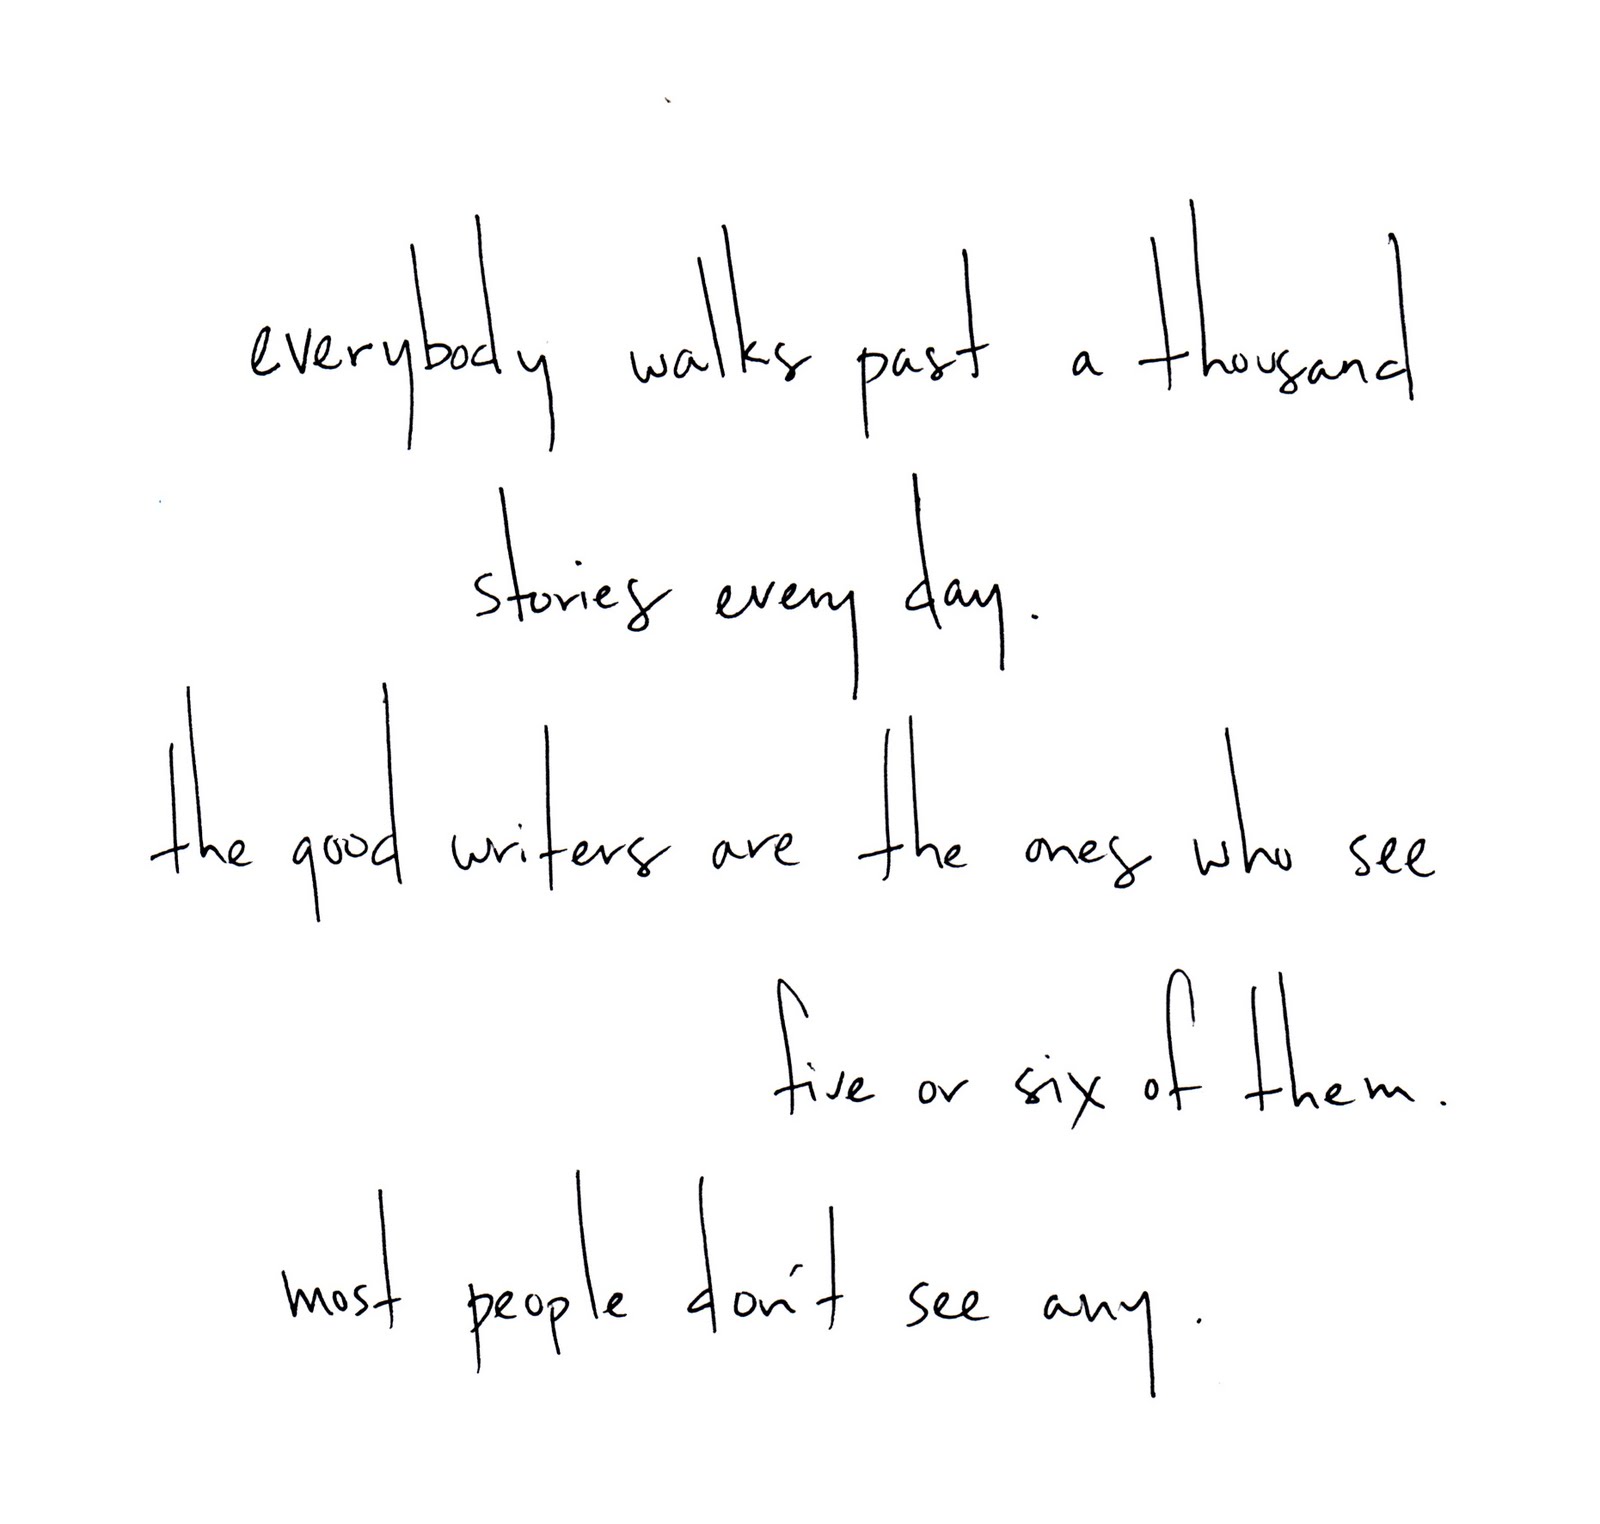 everybody walks past a thousand
stories every day.
the good writers are the ones who see
five or six of them.
most people don't see any.